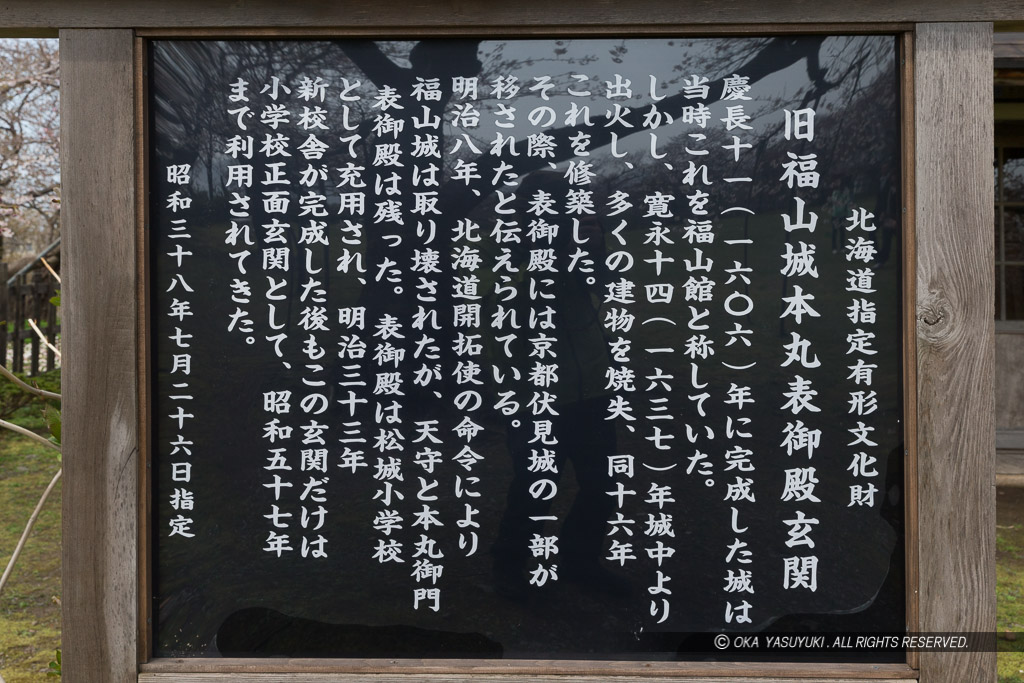 北海道指定有形文化財
旧福山城本丸表御殿玄関
慶長十一（一六〇六）年に完成した城は
当時これを福山館と称していた。
しかし、寛永十四（一六三七）年城中より
出火し、多くの建物を焼失、同十六年
これを修築した。
その際、表御殿には京都伏見城の一部が
移されたと伝えられている。
明治八年、北海道開拓使の命令により
福山城は取り壊されたが、天守と本丸御門
表御殿は残った。表御殿は松城小学校
として充用され、明治三十三年
新校舎が完成した後もこの玄関だけは
小学校正面玄関として、昭和五十七年
まで利用されてきた。
昭和三十八年七月二十六日指定
© OKA YASUYUKI . ALL RIGHTS RESERVED.